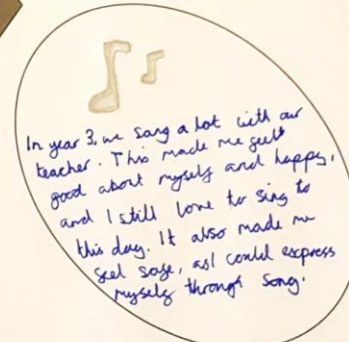 In year 3, we sang a lot with our
teacher. This made me feel
good about myself and happy,
and I still love to sing to
this day. It also made me
feel safe, as I could express
myself through song.